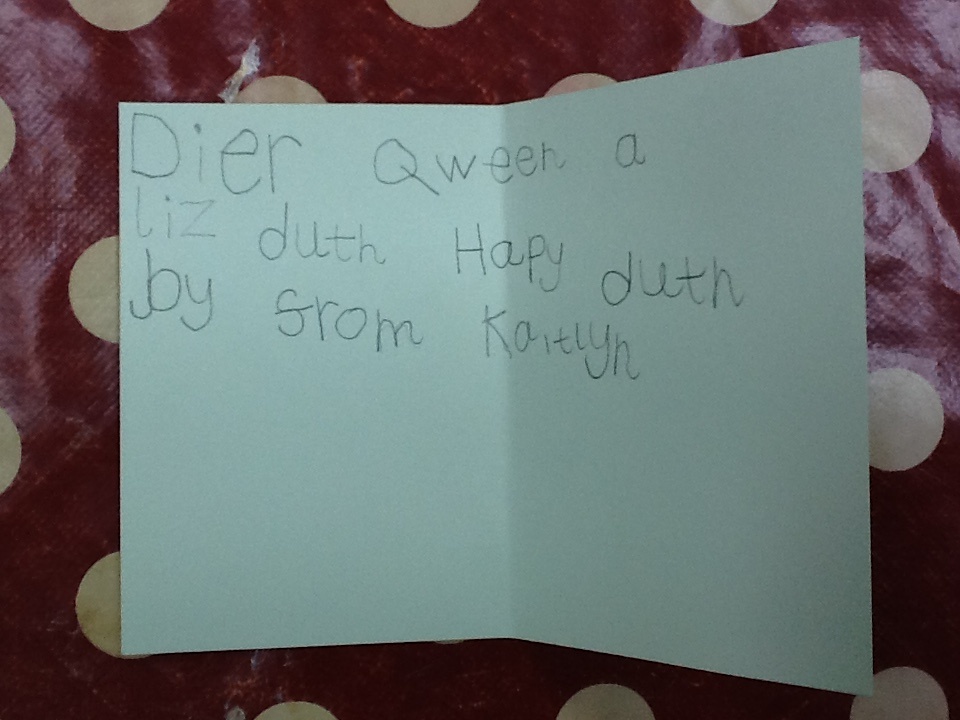 Dier Qween a
liz duth Hapy duth
by from Kaitlyn